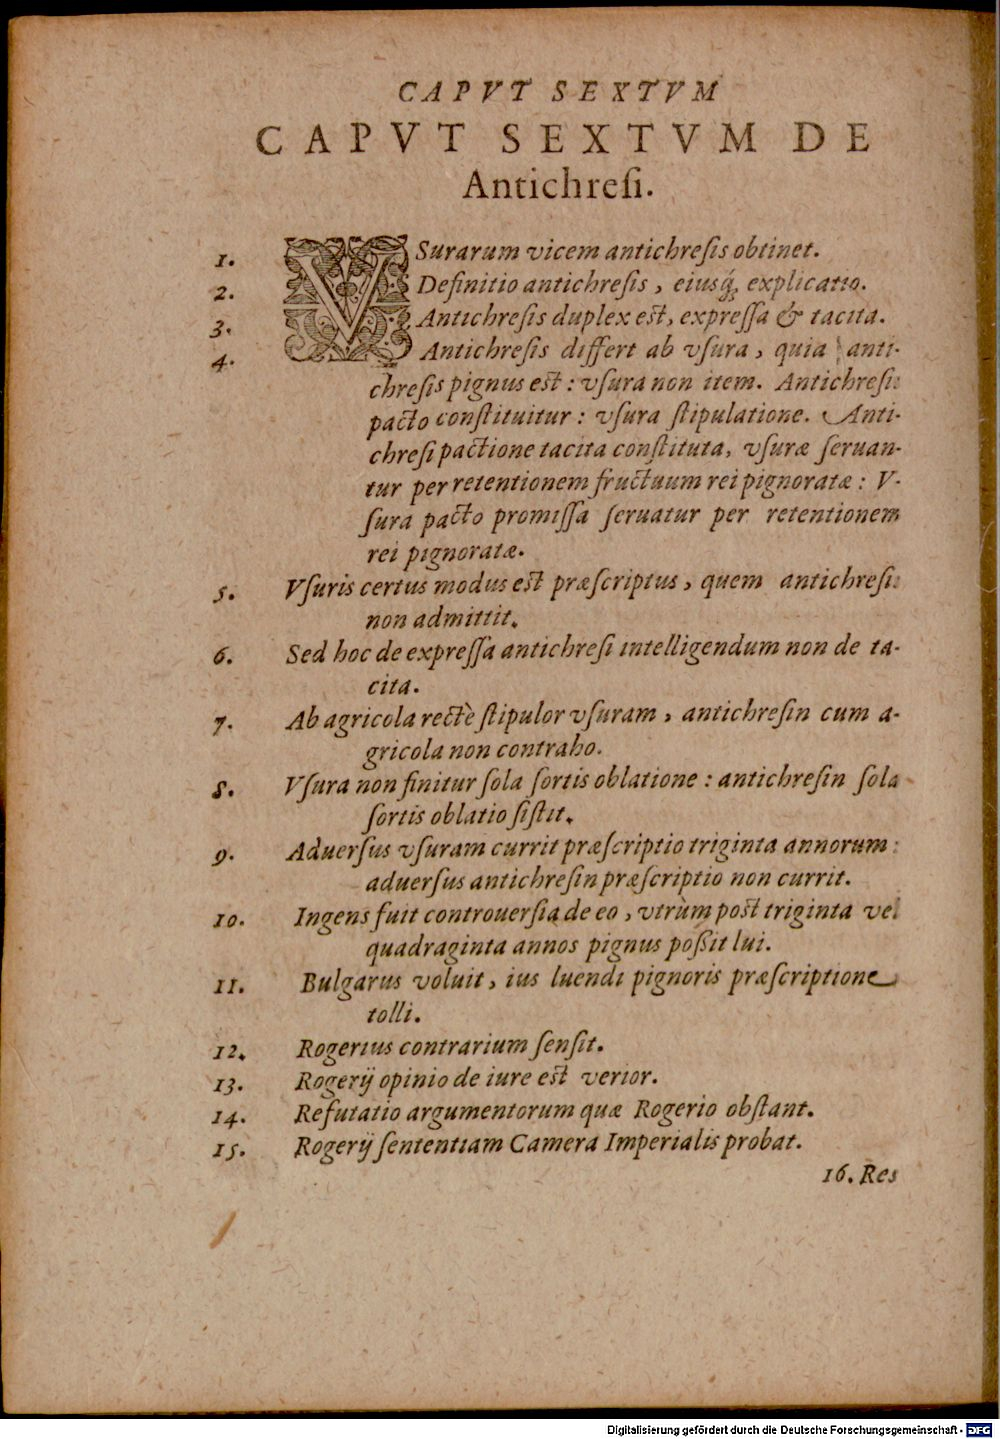 CAPVT SEXTVM
CAPVT SEXTVM DE
Antichreſi.
1. VSurarum vicem antichreſis obtinet.
2. Definitio antichreſis, eiusq́; explicatio.
3. Antichreſis duplex est, expreſſa & tacita.
4. Antichreſis differt ab vſura, quia anti-
chreſis pignus est: vſura non item. Antichreſis
pacto conſtituitur: vſura ſtipulatione. Anti-
chreſi pactione tacita conſtituta, vſuræ ſeruan-
tur per retentionem fructuum rei pignoratæ: V-
ſura pacto promiſſa ſeruatur per retentionem
rei pignoratæ.
5. Vſuris certus modus est præſcriptus, quem antichreſis
non admittit.
6. Sed hoc de expreſſa antichreſi intelligendum non de ta-
cita.
7. Ab agricola rectè ſtipulor vſuram, antichreſin cum a-
gricola non contraho.
8. Vſura non finitur ſola ſortis oblatione: antichreſin ſola
ſortis oblatio ſiſtit.
9. Aduerſus vſuram currit præſcriptio triginta annorum:
aduerſus antichreſin præſcriptio non currit.
10. Ingens fuit controuerſia de eo, vtrùm post triginta vel
quadraginta annos pignus poßit lui.
11. Bulgarus voluit, ius luendi pignoris præſcriptione
tolli.
12. Rogerius contrarium ſenſit.
13. Rogerij opinio de iure est verior.
14. Refutatio argumentorum quæ Rogerio obſtant.
15. Rogerij ſententiam Camera Imperialis probat.
16. Res
Digitalisierung gefördert durch die Deutsche Forschungsgemeinschaft - DFG